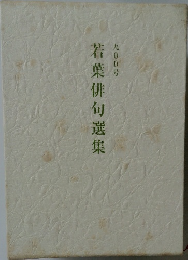 九〇〇号
若葉俳句選集